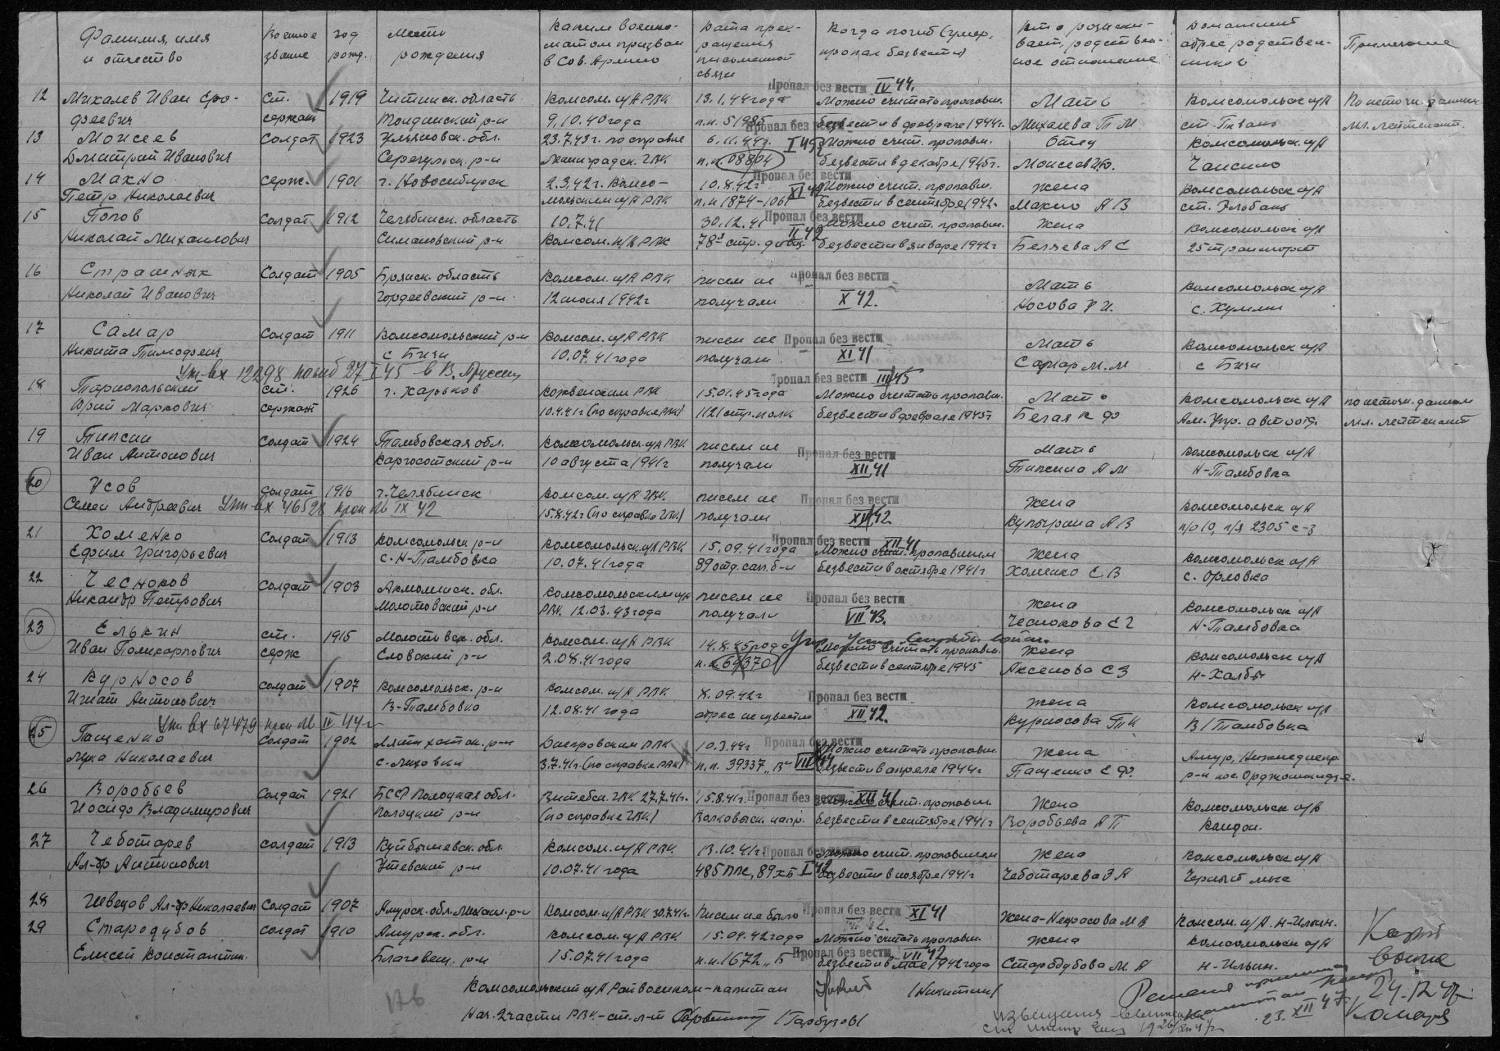 Фамилия, имя и отчество | Военное звание | год рожд. | Место рождения | Каким военкоматом призван в Сов. Армию | Дата прекращения письменной связи | Когда погиб (умер, пропал безвести) | Кто разыскивает, родственное отношение | Домашний адрес родственников | Примечание
Пропал без вести IV 44.
12 Михалев Иван Еро- Ст. 1919 Читинск. область Комсом. н/А РВК 13.1.44 года Можно считать пропавш. Мать Комсомольск н/А По источн. данным
феевич сержант р-н 9.10.40 года п.п. безвести в феврале 1944г. Михалева Т М ст. Мл. лейтенант.
Пропал без вести I 45
13 Моисеев Солдат 1923 Ульяновск. обл. 23.7.43г. по справке 6.11.44г. Можно считать пропавш. Отец Комсомольск н/А
Дмитрий Иванович р-н Ленинградск. ГВК п.п. 08804 безвести в декабре 1945г. Моисеев
Пропал без вести XI 42
14 Махно серж. 1901 г. Новосибирск 2.3.42г. Комсо- 10.8.42г Можно счит. пропавш. Жена Комсомольск н/А
Петр Николаевич мольским н/А РВК п.п 1874-106 безвести в сентябре 1942г. Махно А В ст. Эльбань
Пропал без вести II 42
15 Попов Солдат 1912 Челябинск. область 10.7.41 30.12.41 Можно счит. пропавш. Жена Комсомольск н/А
Николай Михайлович Симановский р-н Комсом. н/А РВК 78я стр. див. безвести в январе 1942г Беляева А С 25 транспорт
16 Страшных Солдат 1905 Брянск. область Комсом. н/А РВК писем не Пропал без вести Мать Комсомольск н/А
Николай Иванович Гордеевский р-н 12 июня 1942г получали X 42. Носова Р И. с. Хумми
17 Самар Солдат 1911 Комсомольский р-н Комсом. н/А РВК писем не Пропал без вести Мать Комсомольск н/А
Никита Тимофеевич с Бичи 10.07.41 года получали XI 41 Самар М.М с Бичи
Ут-вх 12298 погиб 27 I 45 в В. Пруссии
Пропал без вести III 45
18 Тарнопольский ст. 1926 г. Харьков РВК 15.01.45 года Можно считать пропавш. Мать Комсомольск н/А по источн. данным
Юрий Маркович сержант 10.4.41г (по справке РВК) 1121 стр. полк безвести в феврале 1945г Белая К Ф Ам. Упр. автотр. мл. лейтенант
19 Типсин Солдат 1924 Тамбовская обл. Комсомольск н/А РВК писем не Пропал без вести Мать Комсомольск н/А
Иван Антонович р-н 10 августа 1941г получали XII 41 Типсина А М Н-Тамбовка
20 Усов Солдат 1916 г. Челябинск Комсом. н/А ГВК. писем не Пропал без вести Жена Комсомольск н/А
Семен Андреевич Ут-вх 46528 проп IX 42 15.8.42г (по справке ГВК) получали XII 42 А В п/о 10, п/я 2305 с-3
Пропал без вести XII 41
21 Хоменко Солдат 1913 Комсомольск р-н Комсомольск. н/А РВК 15.09.41 года Можно счит. пропавшим Жена Комсомольск н/А
Ефрим Григорьевич с. Н-Тамбовка 10.07.41 года 89 отд. сап. б-н безвести в октябре 1941г Хоменко Е В с. Орловка
22 Чесноков Солдат 1903 Акмолинск. обл. Комсомольским н/А писем не Пропал без вести Жена Комсомольск н/А
Никандр Петрович Молотовский р-н РВК 12.03.43 года получали VII 43. Чеснокова Е Г Н-Тамбовка
23 Елькин ст. 1915 Молотовск. обл. Комсом. н/А РВК 14.8.45 года Можно считать пропавш. Жена Комсомольск н/А
Иван Поликарпович серж Еловский р-н 2.08.41 года п.п. 64370 безвести в сентябре 1945 Аксенова Е З Н-Халбы
24 Курносов Солдат 1907 Комсомольск. р-н Комсом. н/А РВК X.09.42г Пропал без вести Жена Комсомольск н/А
Игнат Антонович В-Тамбовка 12.08.41 года адрес не известно XII 42. Курносова Т К В/Тамбовка
Ут-вх 67479 проп IV 44 г
Пропал без вести VII 44
25 Пащенко Солдат 1902 р-н Днепровским РВК 10.3.44г Можно считать пропавш. Жена Амур, Нижнеднепр.
Лука Николаевич с. Лиховки 3.7.41г (по справке РВК) п.п. 39337 „В" безвести в апреле 1944г Пащенко Е Ф. р-н пос. Орджоникидзе.
Пропал без вести XII 41
26 Воробьев Солдат 1921 БССР Полоцкая обл. Витебск. ГВК 27.7.41г. 15.8.41г. Можно счит. пропавш. Жена Комсомольск н/А
Иосиф Владимирович Полоцкий р-н (по справке ГВК) Волковыск. напр. безвести в сентябре 1941г Воробьева А П Кондон.
Пропал без вести I 42
27 Чеботарев Солдат 1913 Куйбышевск. обл. Комсом. н/А РВК 13.10.41г. Можно счит. пропавшим Жена Комсомольск н/А
Ал-др Антонович Утевский р-н 10.07.41 года 485 ППС, 89 безвести в ноябре 1941г Чеботарева З А Черный мыс
28 Швецов Ал-др Николаевич Солдат 1907 Амурск. обл. р-н Комсом. н/А РВК 30.7.41г. Писем не было Пропал без вести XI 41 Жена-Некрасова М В Комсом. н/А. Н-Ильин.
29 Стародубов Солдат 1910 Амурск. обл. Комсом. н/А РВК 15.04.42 года Можно считать пропавш. Жена Комсомольск н/А
Пропал без вести VII 42
Елисей Константин. Благовещ. р-н 15.07.41 года п.п. 1672 „Б безвести в мае 1942 года Стародубова М. А Н-Ильин.
Комсомольский н/А Райвоенком-капитан (Никитин)
Нач. 2 части РВК-ст. л-т (Гарбузов)
23. XII 47.
24.12.47